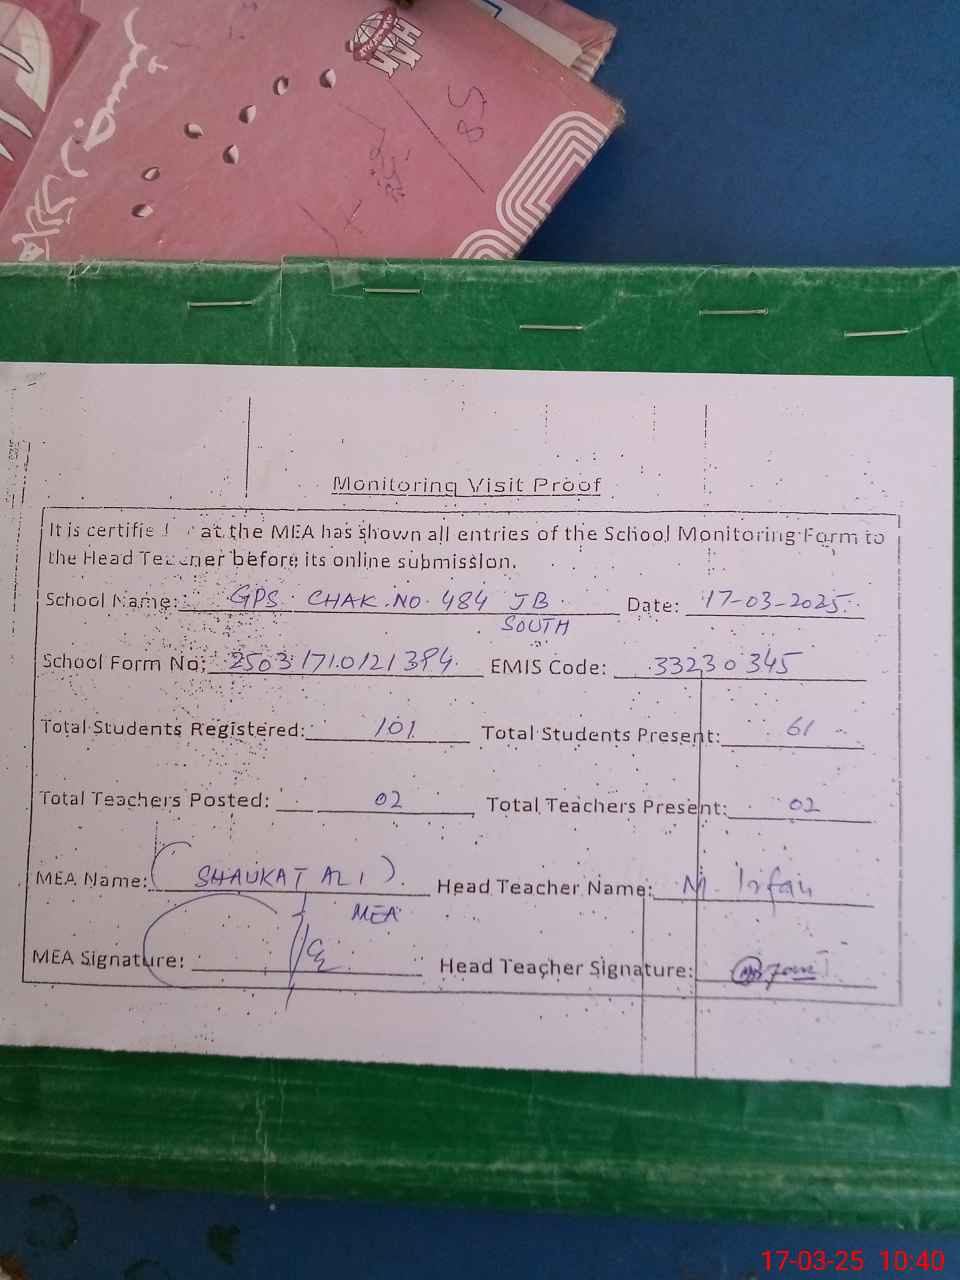 85
Monitoring Visit Proof
It is certifie at the MEA has shown all entries of the School Monitoring Form to
the Head Teacher before its online submission.
School Name: GPS. CHAK. NO. 484 JB. Date: 17-03-2025
SOUTH
School Form No: EMIS Code: 33230345
Total Students Registered: 101 Total Students Present: 61
Total Teachers Posted: 02 Total Teachers Present: 02
MEA Name: (SHAUKAT ALI) Head Teacher Name: M. Irfan
MEA
MEA Signature: Head Teacher Signature:
17-03-25 10:40